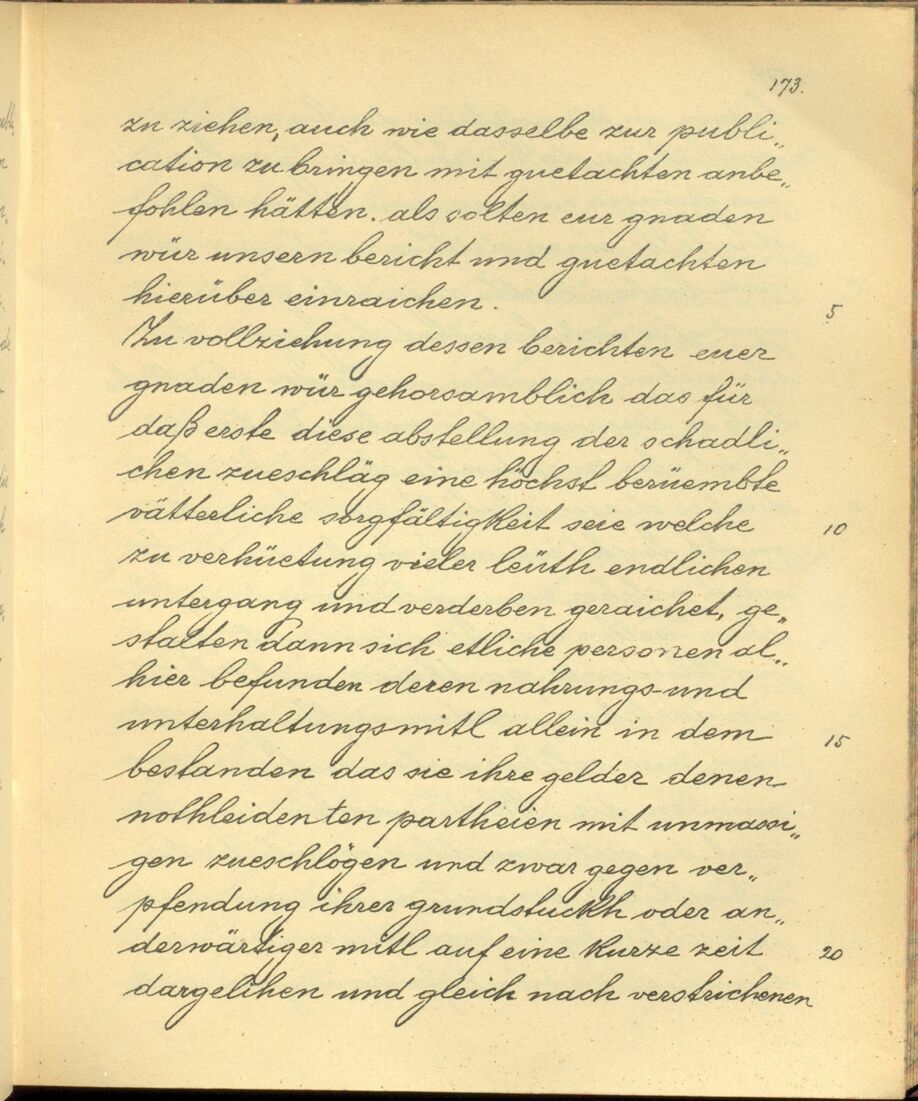 173.
zu ziehen, auch wie dasselbe zur publi„
cation zu bringen mit guetachten anbe„
fohlen hätten. als solten eur gnaden
wür unsern bericht und guetachten
hierüber einraichen. 5
Zu vollziehung dessen berichten euer
gnaden wür gehorsamblich das für
daß erste diese abstellung der schadli„
chen zueschläg eine höchst berüembte
vätterliche sorgfältigkeit seie welche 10
zu verhüetung vieler leüth endlichen
untergang und verderben geraichet, ge„
stalten dann sich etliche personen al„
hier befunden deren nahrungs- und
unterhaltungsmitl allein in dem 15
bestanden das sie ihre gelder denen
nothleidenten partheien mit unmassi„
gen zueschlögen und zwar gegen ver„
pfendung ihrer grundstuckh oder an„
derwärtiger mitl auf eine kurze zeit 20
dargelihen und gleich nach verstrichenen